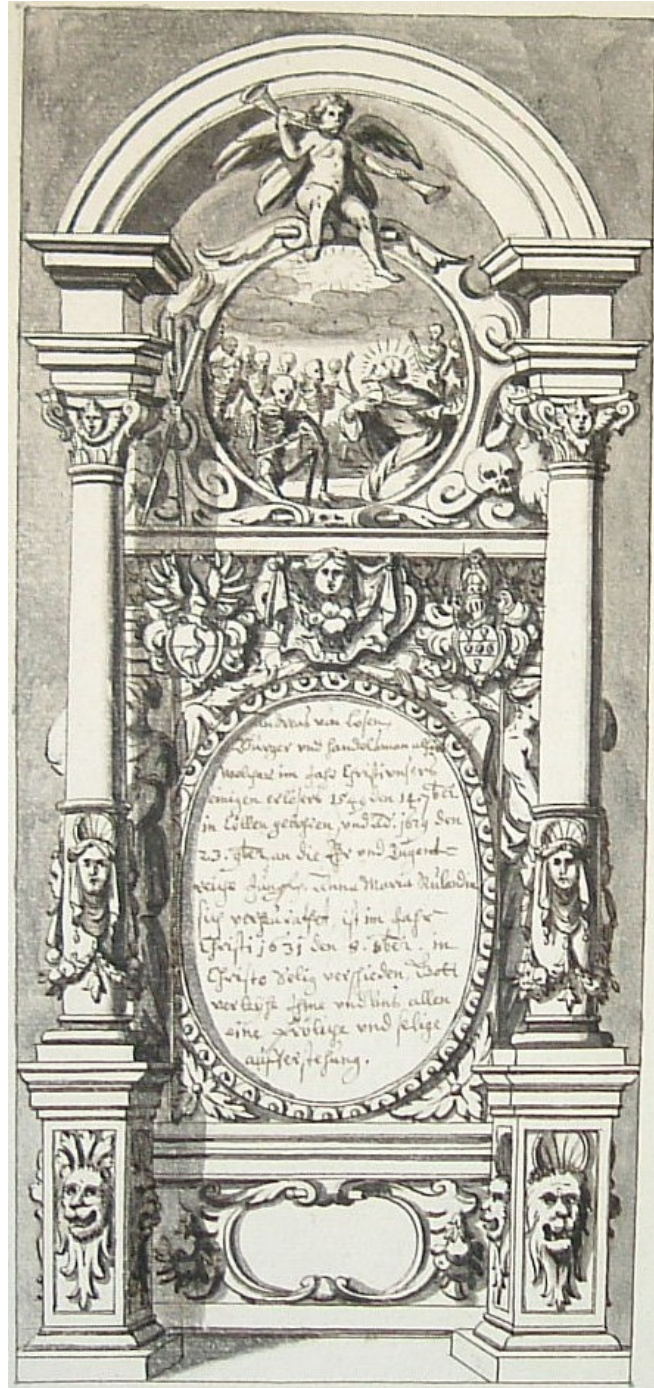 Andreas von Cölen,
Burger und Handelsman alhier
welcher im Jahr Christi unsers
einigen erlösers 15 den 14. 7ber
in Cöllen gebohren, und Ad. 1619 den
23. 9ber an die Ehr und Tugent-
reiche Jungfr. Anna Maria Rulandin
sich verheurathet, ist im Jahr
Christi 1631 den 8. 8ber. in
Christo Selig verschieden, Gott
verleyhe Ihme und uns allen
eine fröliche und selige
aufferstehung.